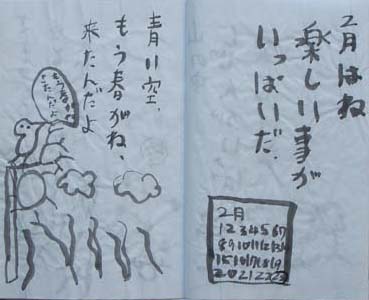 2月はね
楽しい事が
いっぱいだ。
2月
1 2 3 4 5 6 7
8 9 10 11 12 13 14
15 16 17 18 19
20 21 22 23
青い空、
もう春がね、
来たんだよ
もう春がね
きたんだよ